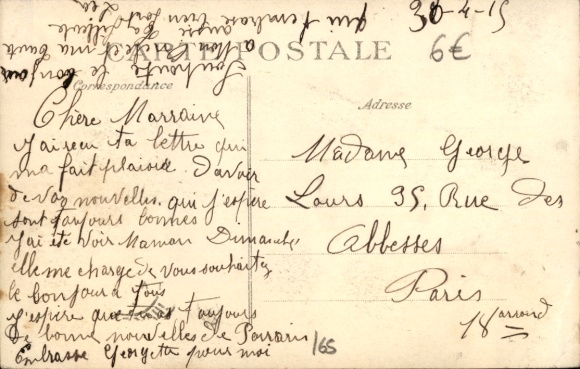 30-4-15
6€
CARTE POSTALE
Correspondance
Adresse
Chère Marraine
J'ai recu ta lettre qui
ma fait plaisir. D'avoir
de vos nouvelles. qui j'espère
sont toujours bonnes
J'ai été voir Maman Dimanche
elle me charge de vous souhaiter
le bonjour a tous
j'espère que toujours
de bonne nouvelles de Parrain
Embrasse Georgette pour moi
/65
Madame George
Lours 95, Rue des
Abbesses
Paris
18 arrond
Souhaite le bonjour
a Marcel ma tante
aussi
qui t'embrasse bien fort
Léa